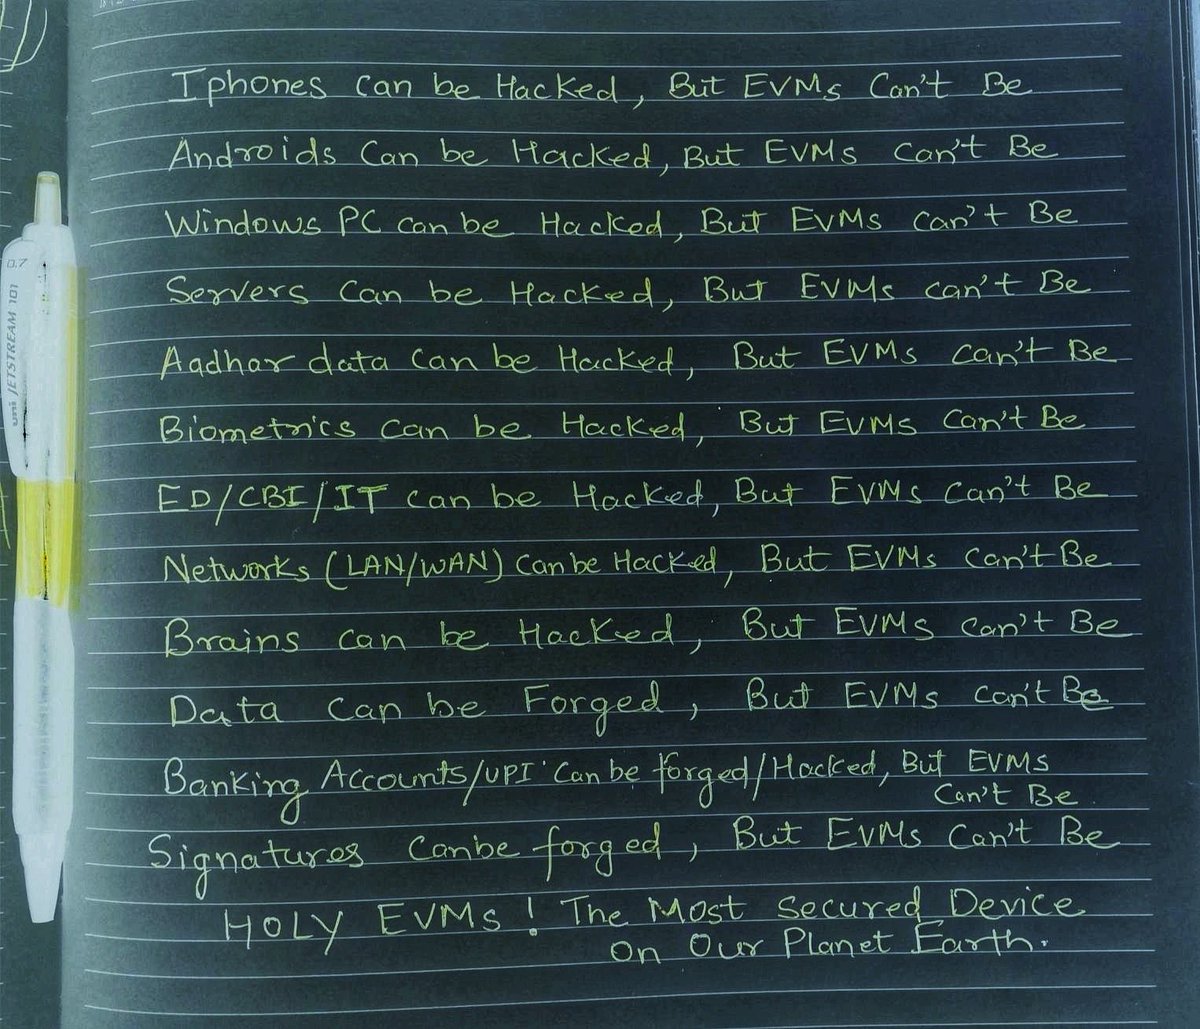 Iphones can be Hacked, But EVMs Can't Be
Androids Can be Hacked, But EVMs can't Be
Windows PC can be Hacked, But EVMs can't Be
Servers can be Hacked, But EVMs can't Be
Aadhar data can be Hacked, But EVMs can't Be
Biometrics can be Hacked, But EVMs can't Be
ED/CBI/IT can be Hacked, But EVMs can't Be
Networks (LAN/WAN) can be Hacked, But EVMs can't Be
Brains can be Hacked, But EVMs can't Be
Data can be Forged, But EVMs can't Be
Banking Accounts/UPI can be forged/Hacked, But EVMs
can't Be
Signatures can be forged, But EVMs can't Be
HOLY EVMs! The Most Secured Device
on Our Planet Earth.
0.7
uni JETSTREAM 101